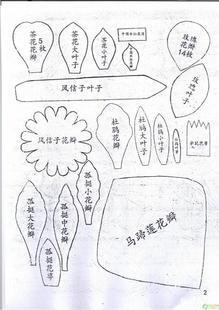 茶花花瓣
5枚
茶花大叶子
茶花小叶子
玫瑰花瓣14枚
玫瑰叶子
风信子叶子
风信子花瓣
杜鹃花瓣
杜鹃大叶子
杜鹃小叶子
孤挺大花瓣
孤挺中花瓣
孤挺小花瓣
孤挺花萼
马蹄莲花瓣
2